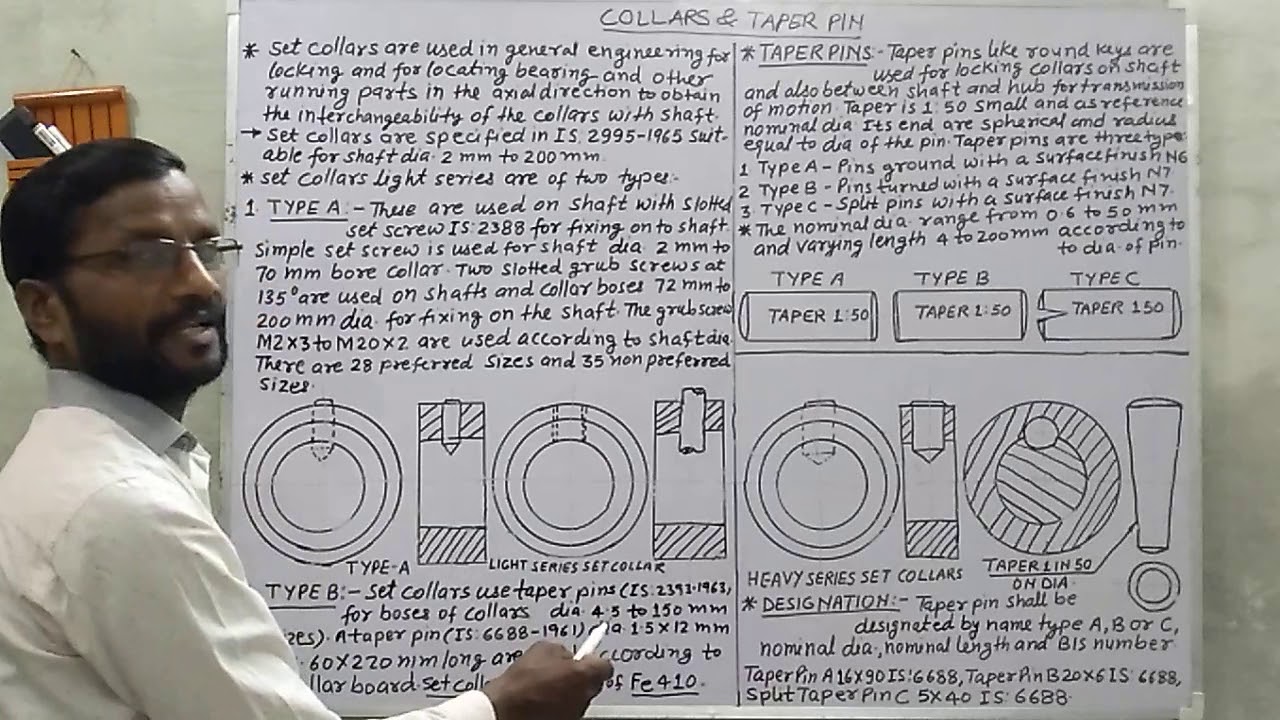 COLLARS & TAPER PIN
* Set collars are used in general engineering for
locking and for locating bearing and other
running parts in the axial direction to obtain
the interchangeability of the collars with shaft.
→ Set collars are specified in IS. 2995-1965 suit-
able for shaft dia. 2 mm to 200 mm.
* Set collars light series are of two types:-
1. TYPE A:- These are used on shaft with slotted
set screw IS:2388 for fixing on to shaft.
Simple set screw is used for shaft dia 2 mm to
70 mm bore collar. Two slotted grub screws at
135° are used on shafts and collar boses 72 mm to
200 mm dia. for fixing on the shaft. The grub screw
M2X3 to M20X2 are used according to shaft dia.
There are 28 preferred sizes and 35 non preferred
sizes.
TYPE-A
LIGHT SERIES SET COLLAR
TYPE B:- Set collars use taper pins (IS:2393-1963,
for boses of collars dia. 4.5 to 150 mm
zes). A taper pin (IS:6688-1961) 1.5X12 mm
60X220 mm long are according to
llar board. Set coll of Fe 410.
* TAPER PINS:- Taper pins like round keys are
used for locking collars on shaft
and also between shaft and hub for transmission
of motion. Taper is 1:50 small end as reference
nominal dia. Its end are spherical and radius
equal to dia of the pin. Taper pins are three type
1 Type A - Pins ground with a surface finish N6
2 Type B - Pins turned with a surface finish N7
3. Type C - Split pins with a surface finish N7.
* The nominal dia. range from 0.6 to 50 mm
and varying length 4 to 200mm according to
to dia. of pin.
TYPE A TYPE B TYPE C
TAPER 1:50 TAPER 1:50 TAPER 1 50
HEAVY SERIES SET COLLARS
TAPER 1 IN 50
ON DIA
* DESIGNATION:- Taper pin shall be
designated by name type A, B or C,
nominal dia., nominal length and BIS number
Taper Pin A 16X90 IS:6688, Taper Pin B 20X6 IS:6688,
Split Taper Pin C 5X40 IS:6688.